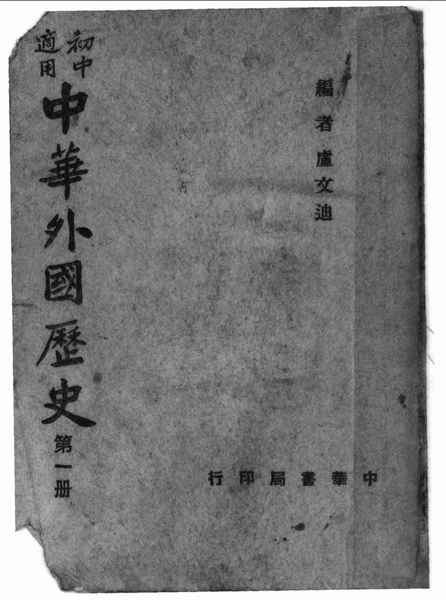 編者盧文迪
初中
適用
中華外國歷史
第一册
中華書局印行